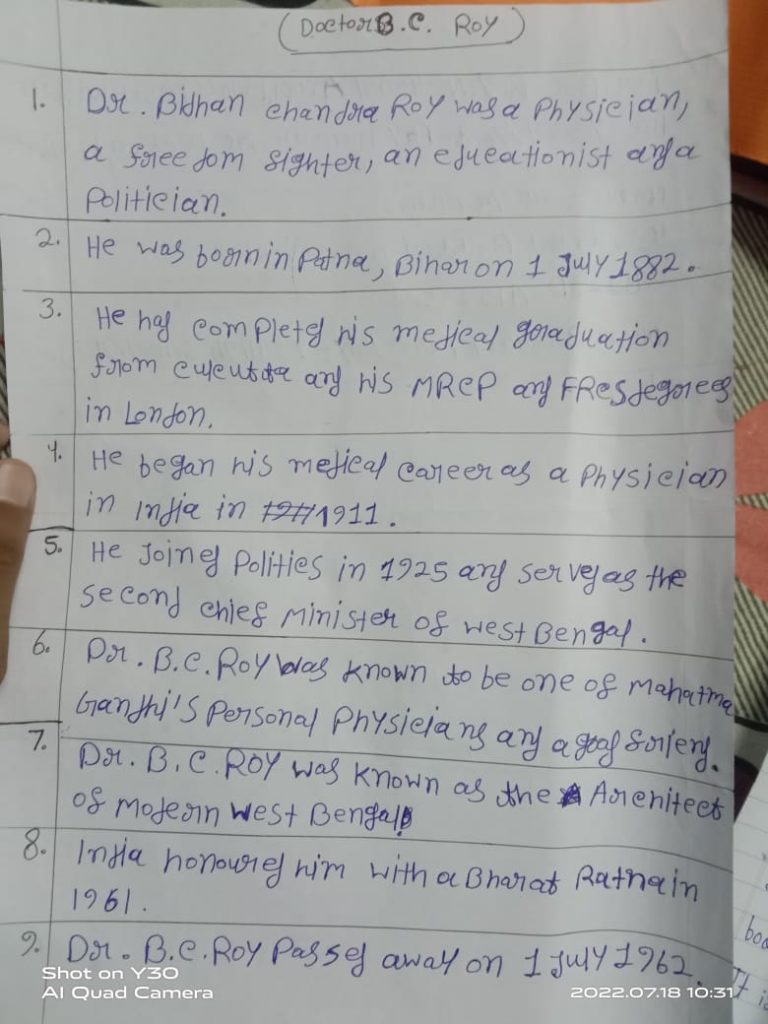 Doctor B.C. Roy
1. Dr. Bidhan chandra Roy was a Physician,
a freedom fighter, an educationist and a
Politician.
2. He was born in Patna, Bihar on 1 July 1882.
3. He had completed his medical graduation
from culcutta and his MRCP and FRCS degrees
in London.
4. He began his medical career as a Physician
in India in 1911.
5. He Joined Politics in 1925 and served as the
second chief Minister of west Bengal.
6. Dr. B.C. Roy was known to be one of Mahatma
Gandhi's Personal Physicians and a good friend.
7. Dr. B.C. Roy was known as the Architect
of modern west Bengal.
8. India honoured him with a Bharat Ratna in
1961.
9. Dr. B.C. Roy Passed away on 1 July 1962.
Shot on Y30
AI Quad Camera
2022.07.18 10:31